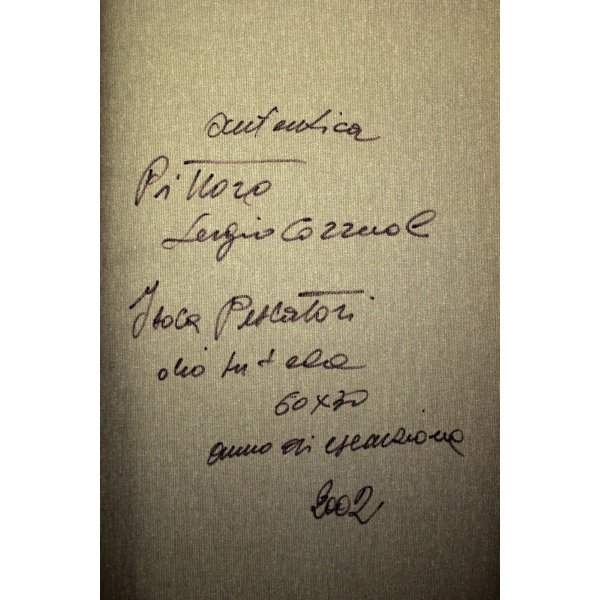 autentica
Pittore
Sergio
Isola Pescatori
olio su tela
60x30
anno di esecuzione
2002